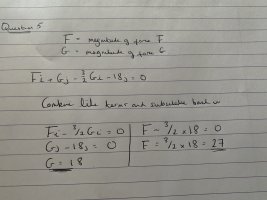 Question 5
F = magnitude of force F
G = magnitude of force G
Fi + Gj - 3/2 Gi - 18j = 0
Combine like terms and substitute back in
Fi - 3/2 Gi = 0
Gj - 18j = 0
G = 18
F - 3/2 × 18 = 0
F = 3/2 × 18 = 27